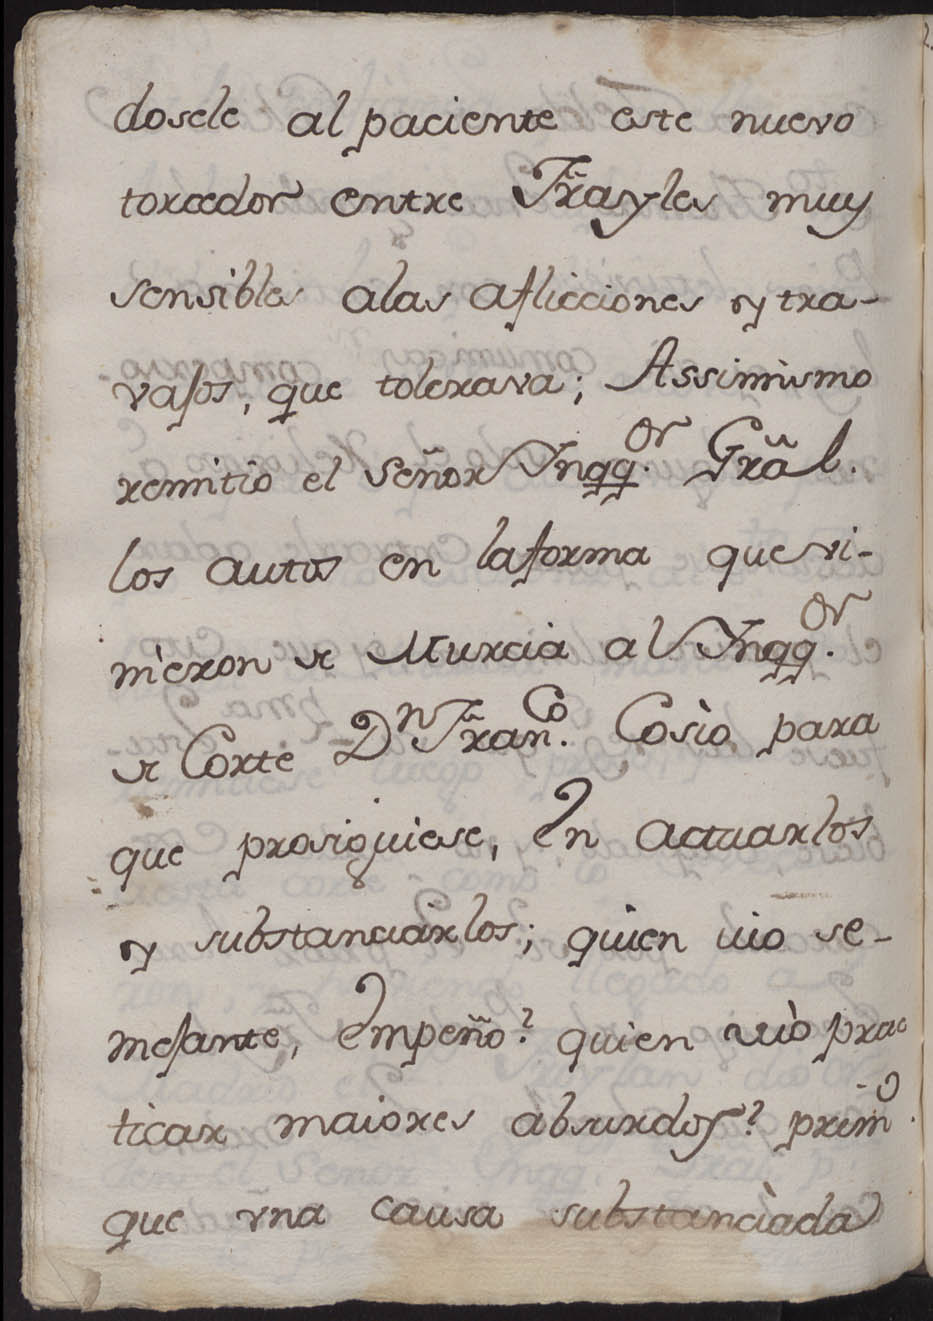 dosele al paciente este nuevo
torcedor entre Frayles muy
sensibles alas aflicciones y tra-
vajos, que tolerava; Assimismo
remitiò el Señor Ynqq.or Grãl.
los autos en laforma que vi-
nieron de Murcia al Ynqq.or
de Corte Dn Fran.co Cosìo para
que prosiguiese, En actuarlos
y substanciarlos; quien viio se-
mejante, Empeño? quien viò prac
ticar maiores absurdos? prim.o
que vna causa substanciada